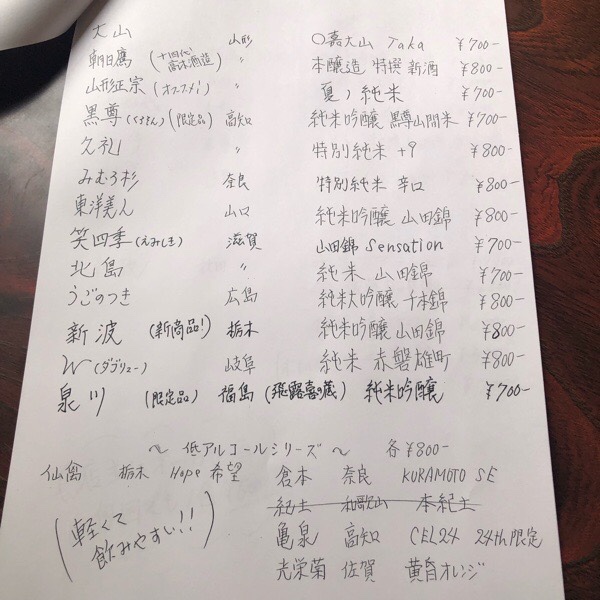 大山 山形 〇嘉大山 Taka ¥700-
朝日鷹 (十四代! 高木酒造) 〃 本醸造 特撰 新酒 ¥800-
山形正宗 (オススメ!) 〃 夏ノ純米 ¥700-
黒尊 (くろそん) (限定品) 高知 純米吟醸 黒尊山間米 ¥700-
久礼 〃 特別純米 +9 ¥800-
みむろ杉 奈良 特別純米 辛口 ¥800-
東洋美人 山口 純米吟醸 山田錦 ¥800-
笑四季 (えみしき) 滋賀 山田錦 Sensation ¥700-
北島 〃 純米 山田錦 ¥700-
うごのつき 広島 純米吟醸 千本錦 ¥800-
新波 (新商品!) 栃木 純米吟醸 山田錦 ¥800-
W (ダブリュー) 岐阜 純米 赤磐雄町 ¥800-
泉川 (限定品) 福島 (飛露喜の蔵) 純米吟醸 ¥700-
〜 低アルコールシリーズ 〜 各¥800-
仙禽 栃木 Hope 希望 倉本 奈良 KURAMOTO SE
紀土 和歌山 本紀土
(軽くて 亀泉 高知 CEL24 24th限定
飲みやすい!!) 光栄菊 佐賀 黄昏オレンジ